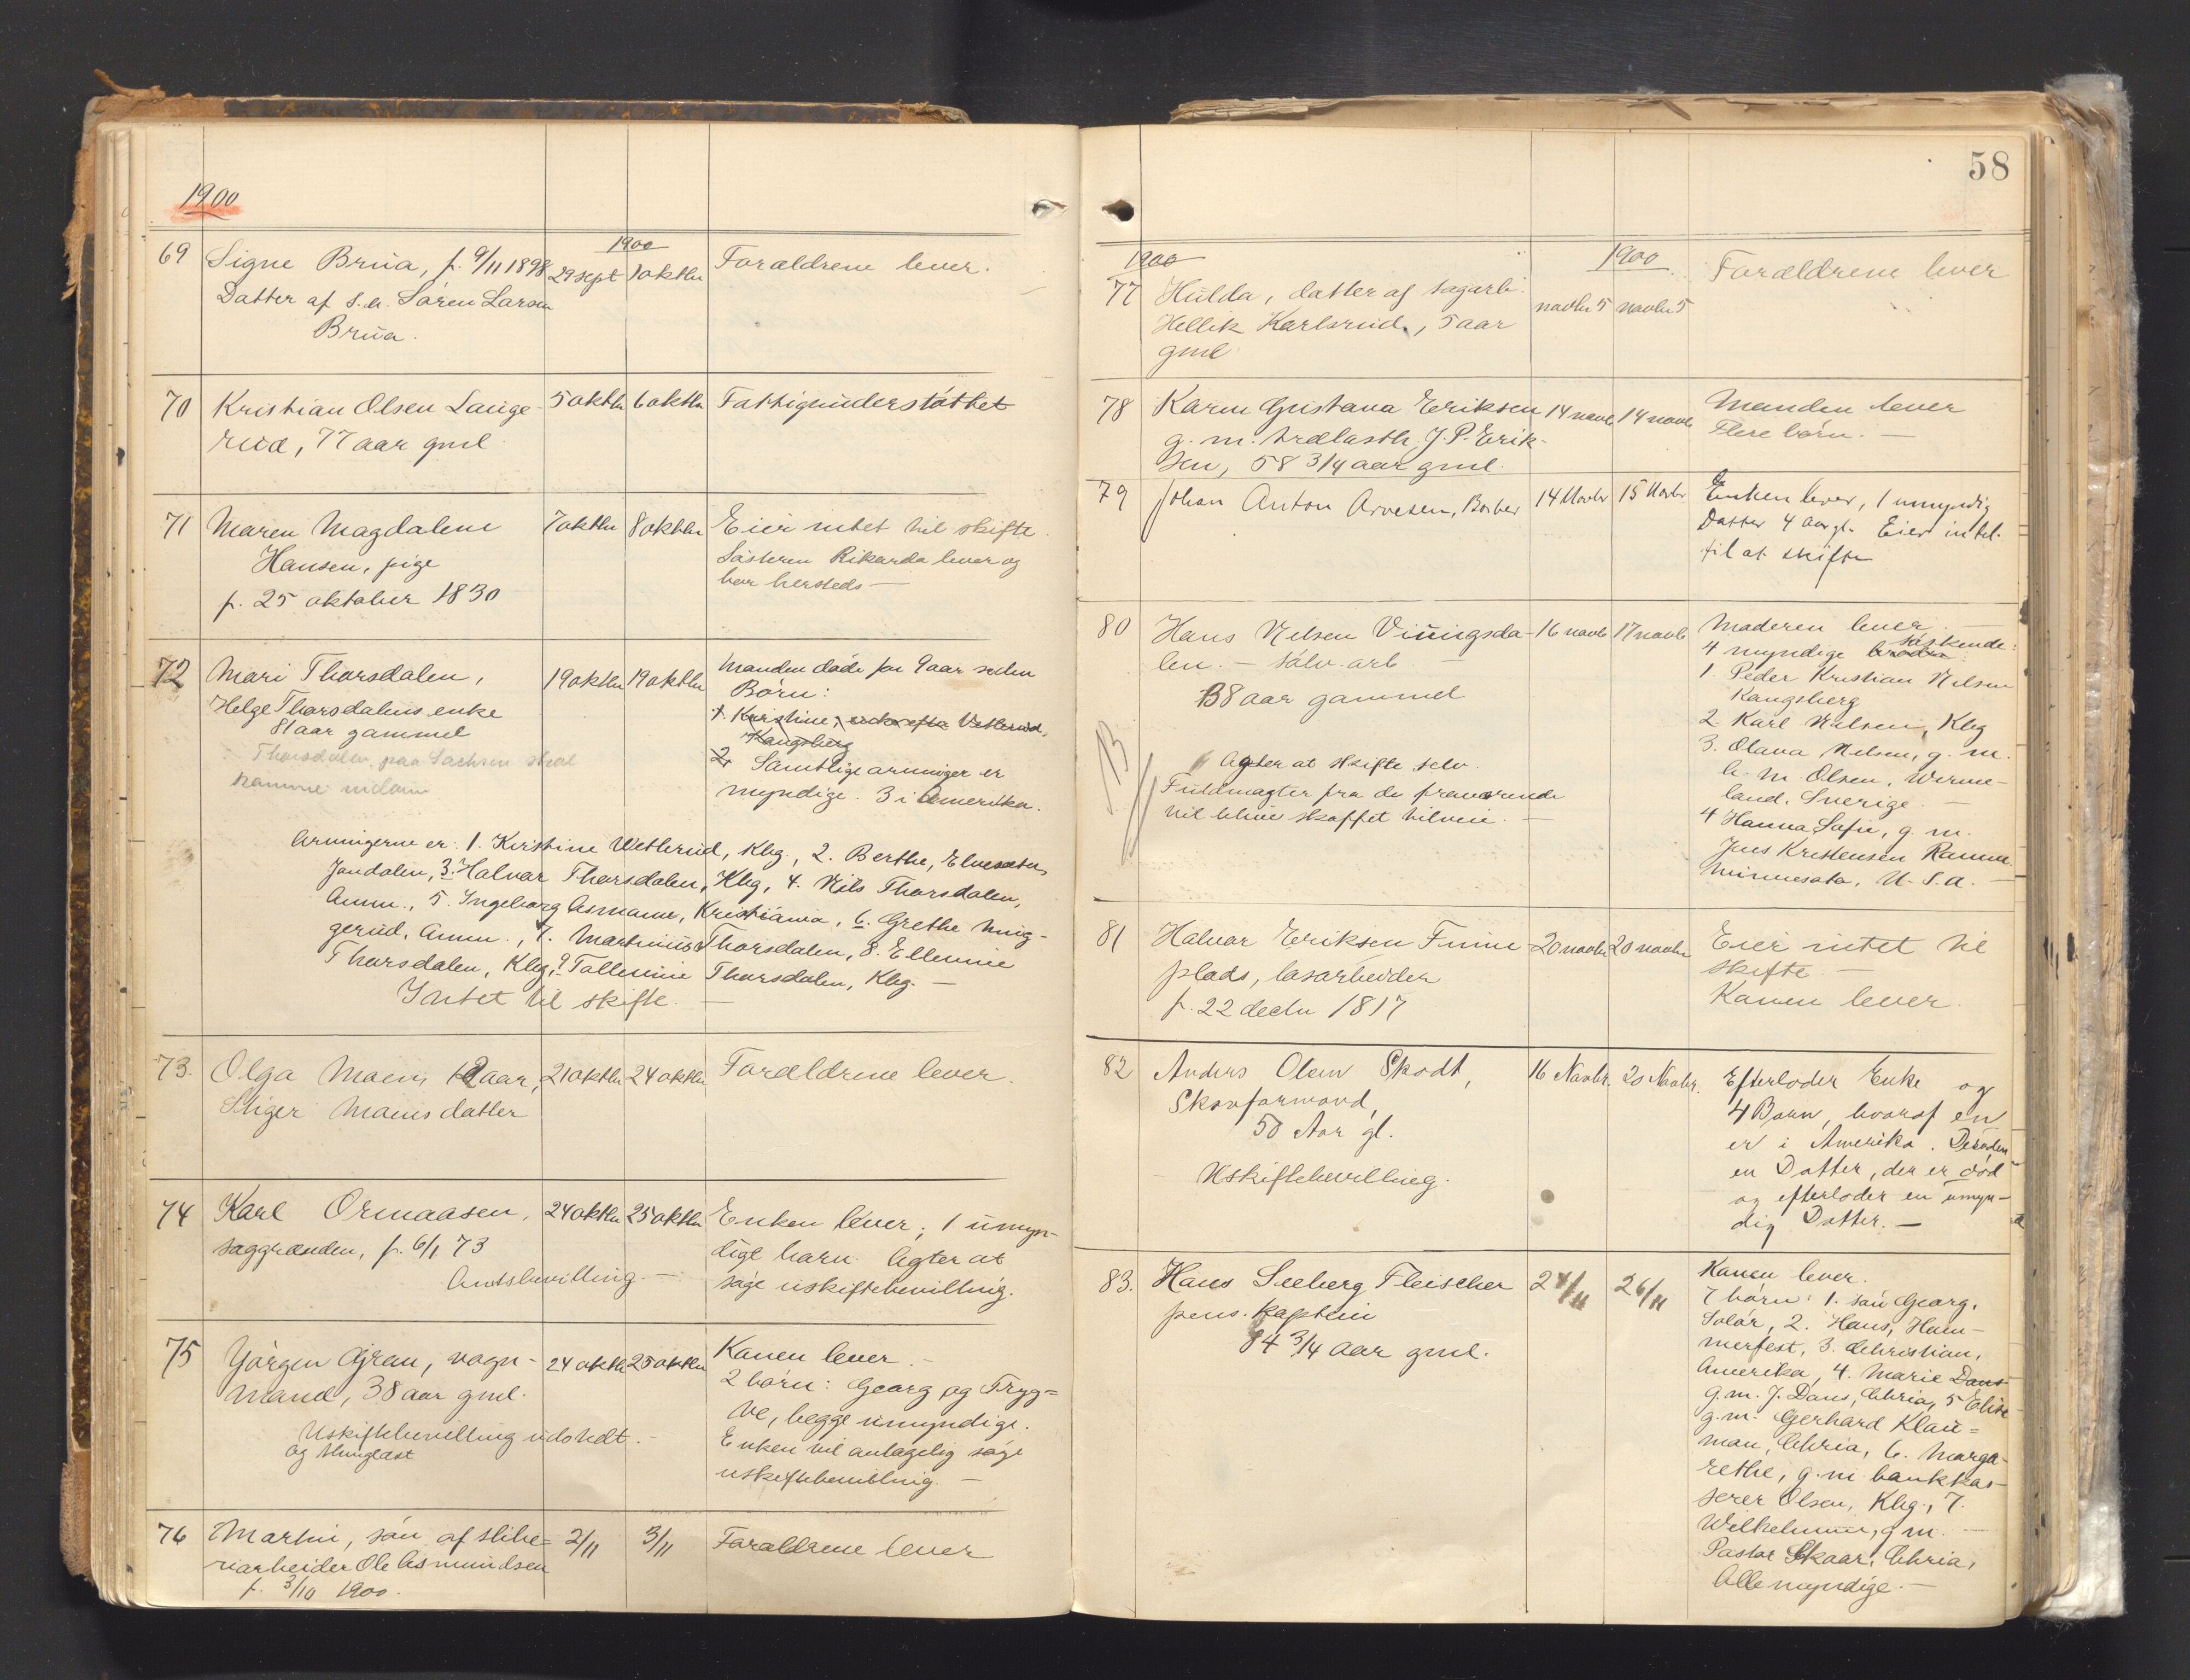 1900
1900
69 Signe Brua, f. 9/11 1898 29 sept 1 oktbr Forældrene lever.
Datter af s.a. Sören Larsen
Brua.
70 Kristian Olsen Lauge- 5 oktbr 6 oktbr Fattigunderstöttet
rud, 77 aar gml
71 Maren Magdalene 7 oktbr 8 oktbr Eier intet til skifte.
Hansen, pige Sösteren Rikarda lever og
f. 25 oktober 1830 bor hersteds —
72 Mari Thorsdalen, 19 oktbr 19 oktbr Manden döde for 9 aar siden
Helge Thorsdalens enke Börn:
81 aar gammel 1. Kirstine, enke efter Vetterud,
Kongsberg
Thorsdalen, paa Sachsen skal 2. Samtlige arvinger er
komme myndige. 3 i Amerika.
Arvingerne er: 1. Kirstine Wetterud, Kbg, 2. Berthe,
Jondalen, 3. Halvor Thorsdalen, Kbg, 4. Nils Thorsdalen,
Amm., 5. Ingeborg Asmanne, Kristiania, 6. Grethe Mug-
gerud, Amm., 7. Martinius Thorsdalen, 8. Ellevine
Thorsdalen, Kbg, 9 Tallevine Thorsdalen, Kbg. —
Intet til skifte. —
73. Olga Moen, 12 aar, 21 oktbr 24 oktbr Forældrene lever.
Stiger Moens datter
74 Karl Ormaasen, 24 oktbr 25 oktbr Enken lever; 1 umyn-
saggrænden, f. 6/1 73 digt barn. Agter at
Amtsbevilling. — söge uskiftebevilling.
75 Jörgen Gjren, vogn- 24 oktbr 25 oktbr Konen lever. —
mand, 38 aar gml. 2 börn: Georg og Tryg-
ve, begge umyndige.
Uskiftebevilling udstedt. — Enken vil antagelig söge
og thinglæst uskiftebevilling. —
76 Martin, sön af slibe- 2/11 3/11 Forældrene lever
riarbeider Ole Asmundsen
f. 3/10 1900.
58
1900 1900
77 Hulda, datter af sagarb. novbr 5 novbr 5 Forældrene lever
Hellik Karlsrud, 5 aar
gml
78 Karen Gustava Eriksen 14 novb 14 novb Manden lever
g. m. trælasth. J. P. Erik- Flere börn. —
sen, 58 3/4 aar gml.
79 Johan Anton Arvesen, Barber 14 Novbr 15 Novbr. Enken lever, 1 umyndig
Datter 4 Aar gl. Eier intet
til at skifte
80 Hans Nilsen Vinningsda- 16 novb 17 novb Moderen lever. —
len. — sölv. arb. — 4 myndige brödre söskende:
38 aar gammel 1. Peder Kristian Nilsen
Kongsberg
2. Karl Nilsen, Kbg
3. Olava Nilsen, g. m.
Agter at skifte selv. A. M. Olsen, Werme-
Fuldmagter fra de fraværende land, Sverige. —
vil blive skaffet tilveie. — 4 Hanna Sofie, g. m.
Jens Kristensen
Minnesota, U. S. A. —
81 Halvor Eriksen Funne- 20 novbr 20 novbr Eier intet til
plads, lösarbeider skifte. —
f. 22 decbr 1817 Konen lever.
82 Anders Olsen Skodt, 16 Novbr. 20 Novbr. Efterlader Enke og
Skovformand, 4 Børn, hvoraf en
50 Aar gl. er i Amerika. Desuden
Uskiftebevilling. en Datter, der er död
og efterlader en umyn-
dig Datter. —
83. Hans Seeberg Fleischer 24/11 26/11 Konen lever.
pens. kaptein 7 börn: 1. sön Georg,
84 3/4 aar gml. Solör, 2. Hans, Ham-
merfest, 3. Christian,
Amerika, 4. Marie Dans
g. m. J. Dans, Chria, 5 Elise
g. m. Gerhard Klau=
man, Chria, 6. Marga-
rethe, g. m. bankkas-
serer Olsen, Kbg., 7.
Wilhelmine, g m. —
Pastor Skaar, Chria,
Alle myndige. —